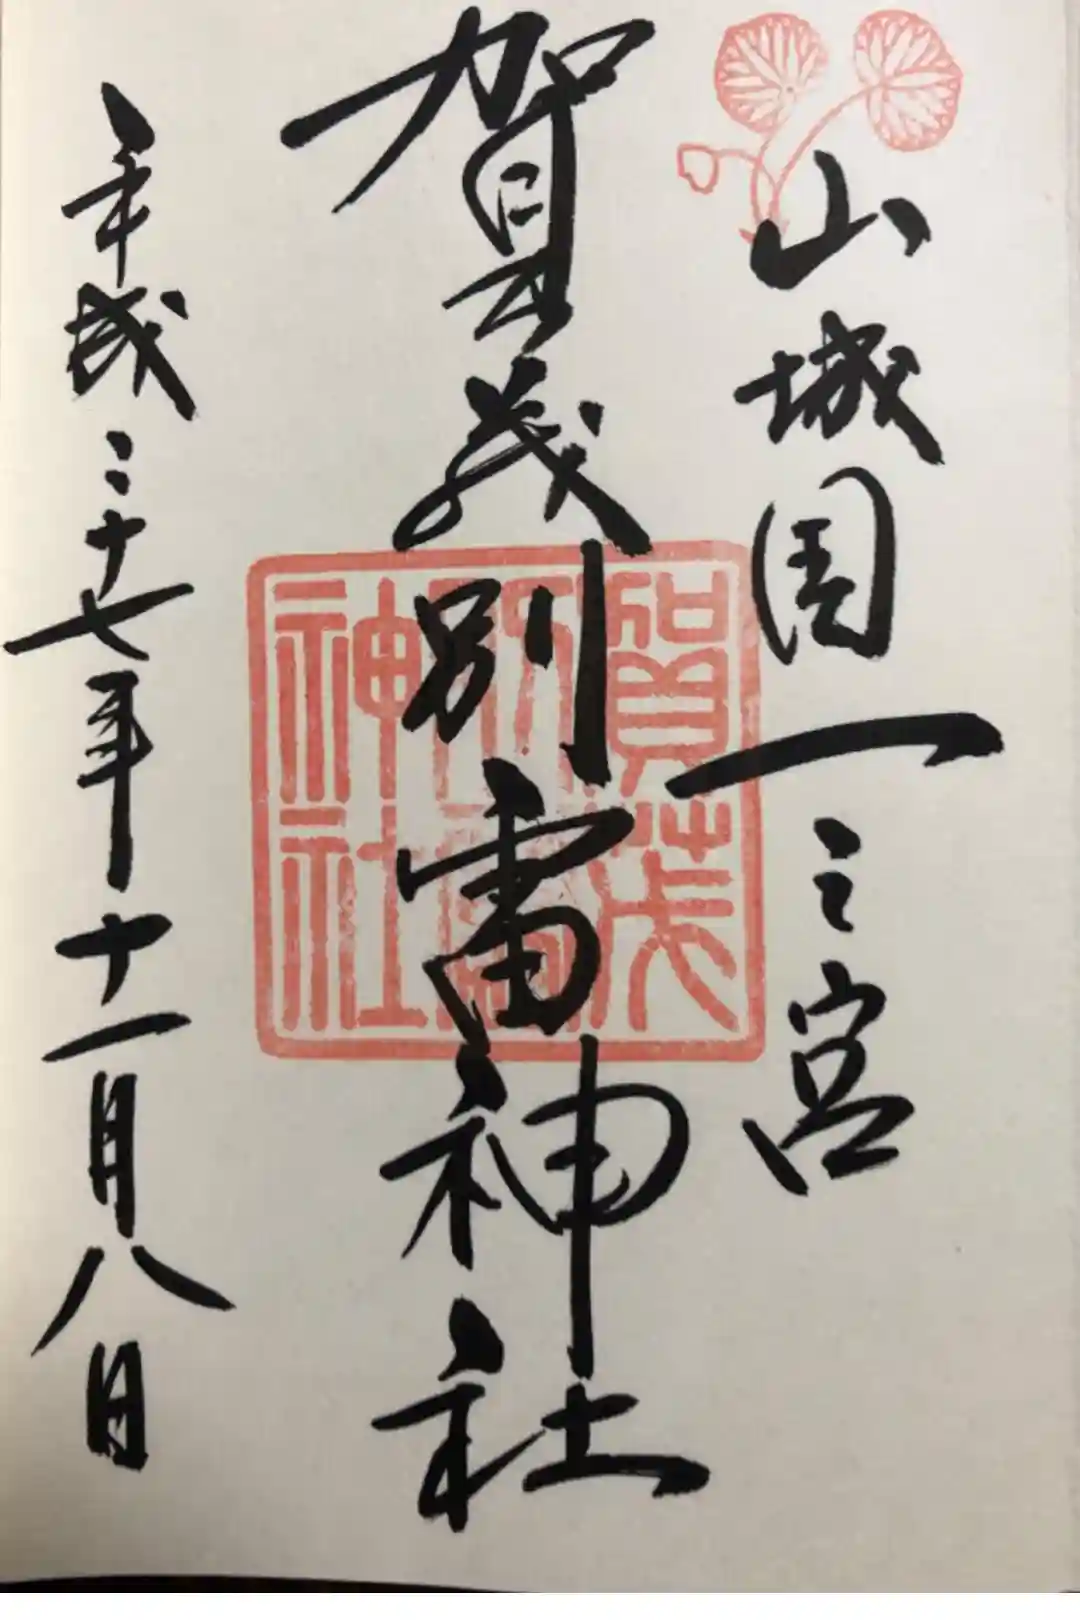 山城国一之宮
賀茂別雷神社
平成二十七年十一月八日
賀茂
神社